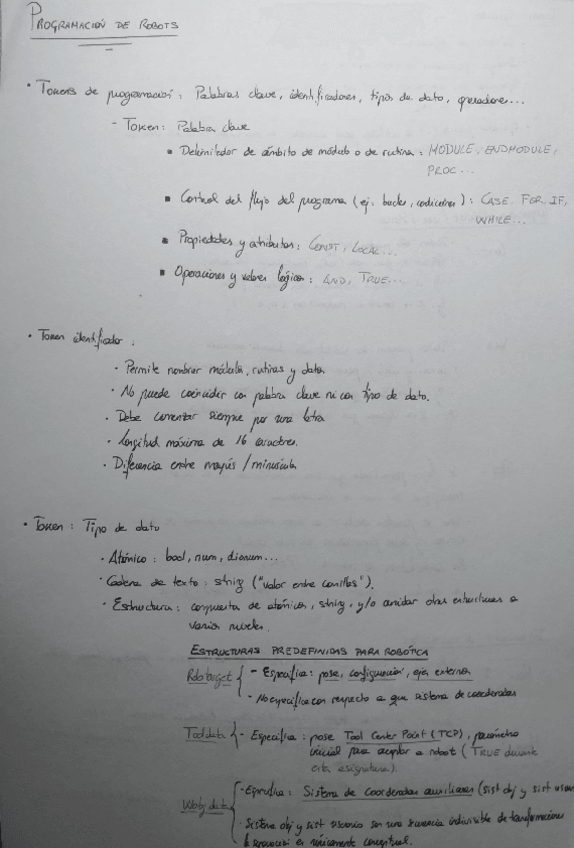 PROGRAMACIÓN DE ROBOTS
• Tokens de programación: Palabras clave, identificadores, tipos de dato, operadores...
- Token: Palabra clave
▪ Delimitador de ámbito de módulo o de rutina: MODULE, ENDMODULE,
PROC...
▪ Control del flujo del programa (ej: bucles, condiciones): CASE, FOR, IF,
WHILE...
▪ Propiedades y atributos: CONST, LOCAL...
▪ Operaciones y valores lógicos: AND, TRUE...
• Token identificador:
· Permite nombrar módulos, rutinas y datos
· No puede coincidir con palabra clave ni con tipo de dato.
· Debe comenzar siempre por una letra
· Longitud máxima de 16 caracteres.
· Diferencia entre mayús/minúscula
• Token: Tipo de dato
· Atómico: bool, num, dionum...
· Cadena de texto: string ("valor entre comillas").
· Estructura: compuesta de atómicos, string, y/o anidar otras estructuras a
varios niveles.
ESTRUCTURAS PREDEFINIDAS PARA ROBÓTICA
Robtarget { - Especifica: pose, configuración, ejes externos
- No especifica con respecto a que sistema de coordenadas
Tooldata { - Especifica: pose Tool Center Point (TCP),
inicial para acoplar a robot (TRUE durante
esta asignatura).
Wobjdata { - Especifica: Sistema de Coordenadas auxiliares (sist obj y sist usuario
· Sistema obj y sist usuario son una secuencia indivisible de transformaciones
la separación es únicamente conceptual.